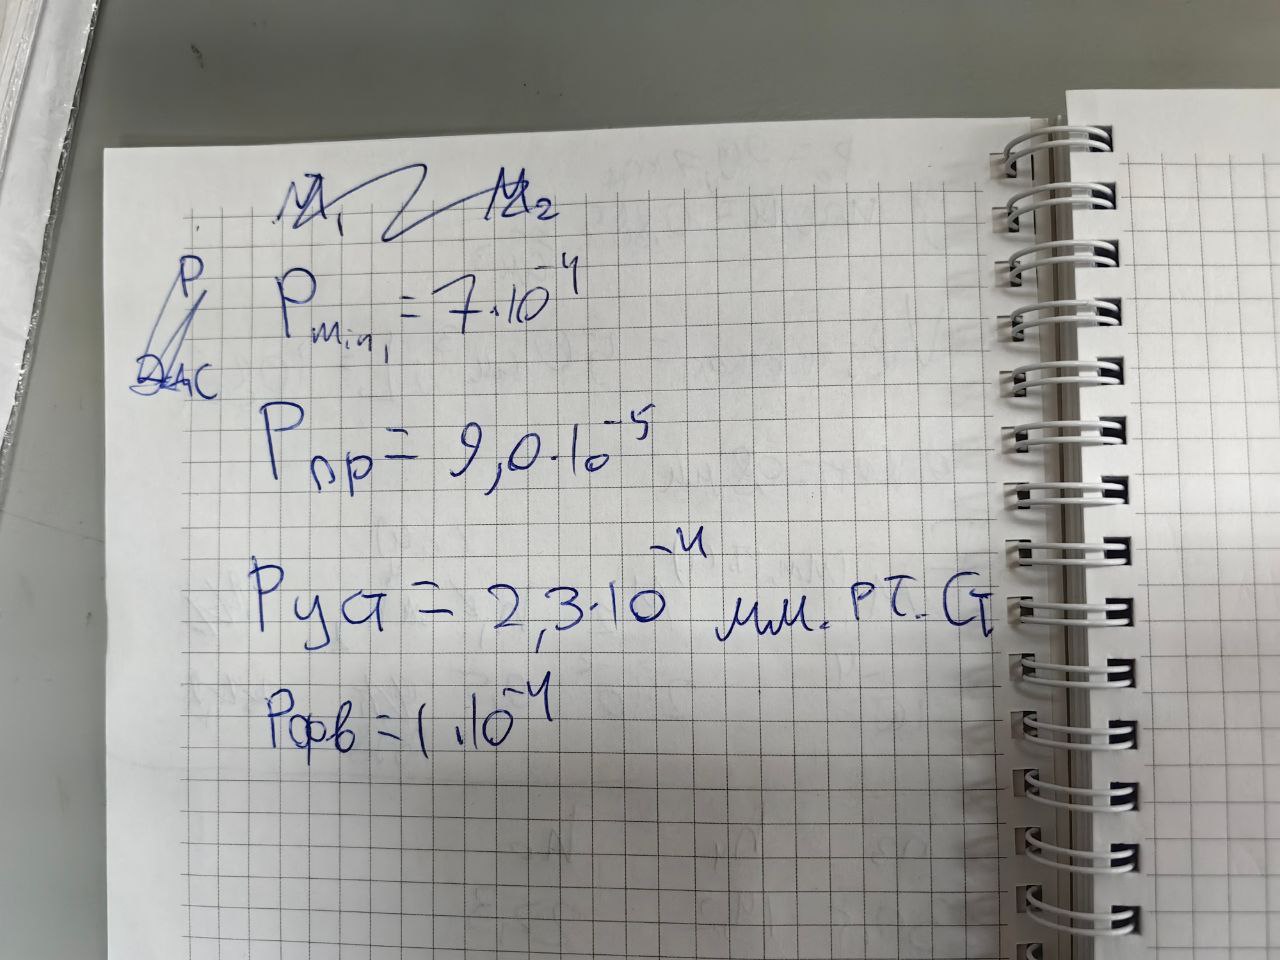 M₁ M₂
P
P min₁ = 7·10⁻⁴
Pпр = 9,0·10⁻⁵
Pуст = 2,3·10⁻⁴ мм. рт. ст
Pфв = 1·10⁻⁴